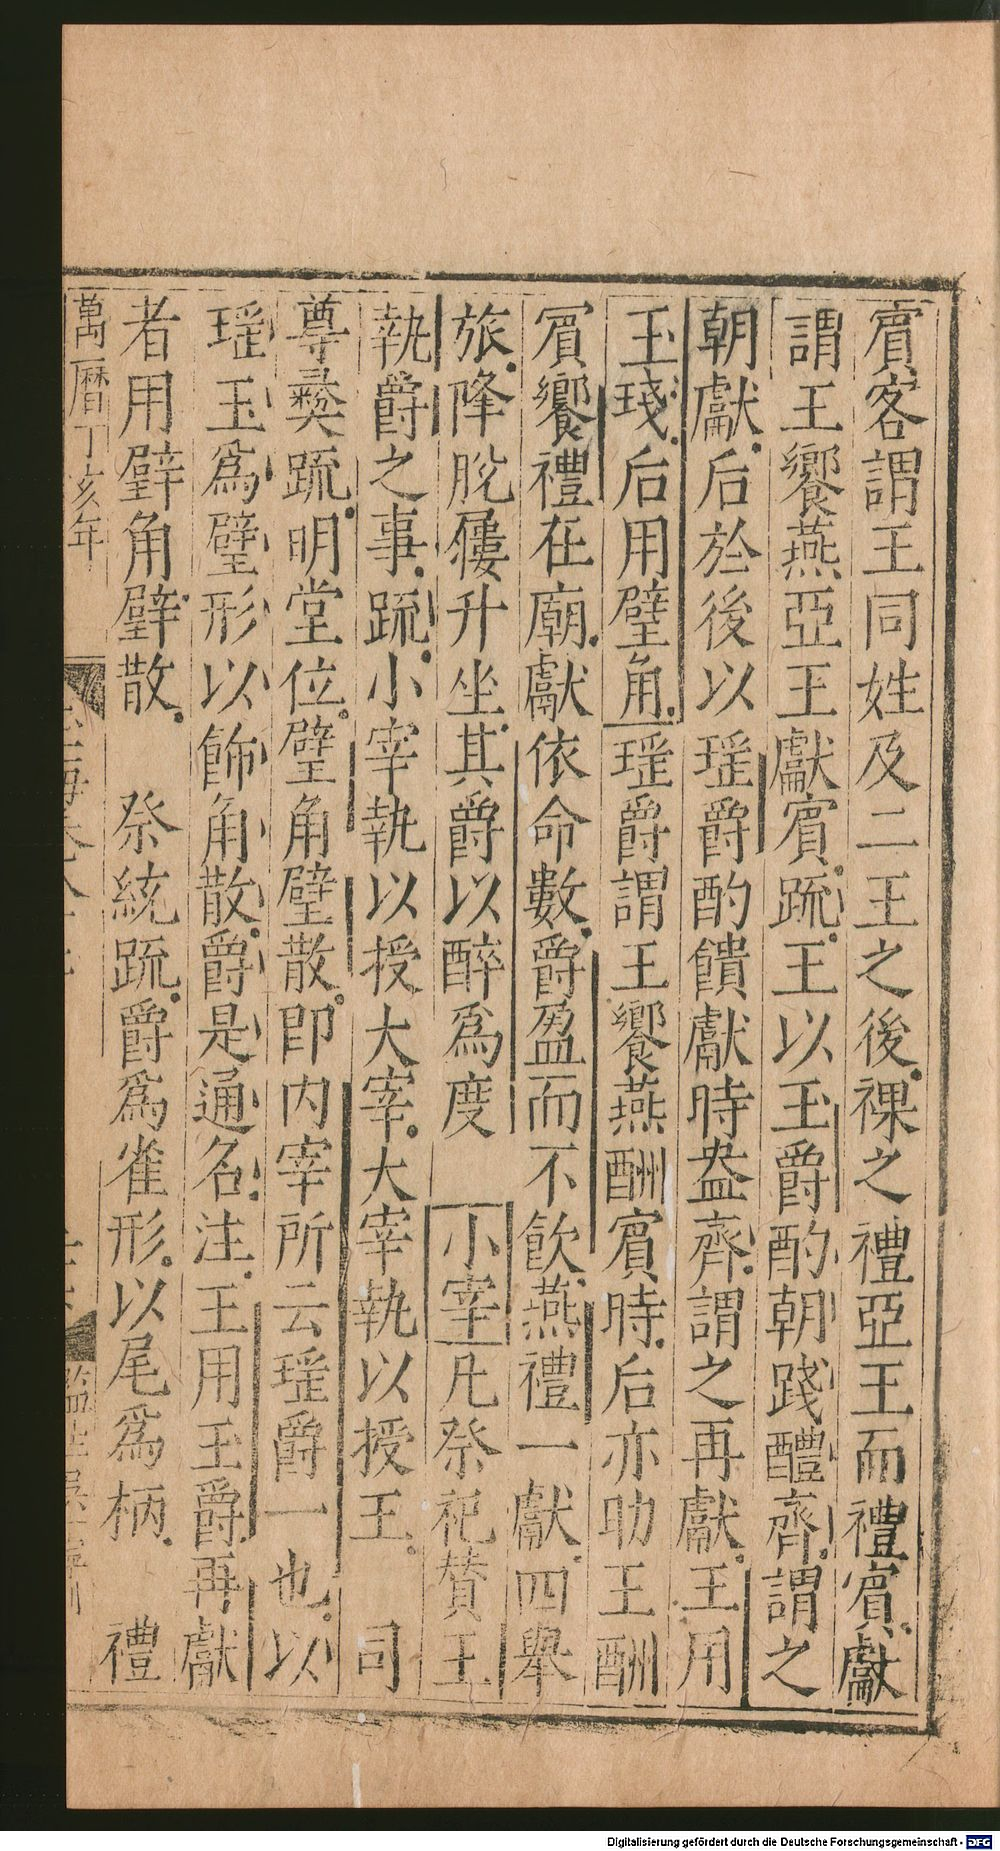 賔客謂王同姓及二王之後祼之禮亞王而禮賔獻
謂王饗燕亞王獻賔疏王以玉爵酌朝踐醴齊謂之
朝獻后於後以瑶爵酌饋獻時盎齊謂之再獻王用
玉琖后用璧角瑶爵謂王饗燕酬賔時后亦助王酬
賔饗禮在廟獻依命數爵盈而不飲燕禮一獻四舉
旅降脫屨升坐其爵以醉為度　小宰凡祭祀贊王
執爵之事疏小宰執以授大宰大宰執以授王　司
尊彝疏明堂位璧角璧散即内宰所云瑶爵一也以
瑶玉為璧形以飾角散爵是通名注王用玉爵再獻
者用璧角璧散　祭統疏爵為雀形以尾為柄　禮
萬曆丁亥年
玉海卷八十
監生吳
Digitalisierung gefördert durch die Deutsche Forschungsgemeinschaft - DFG